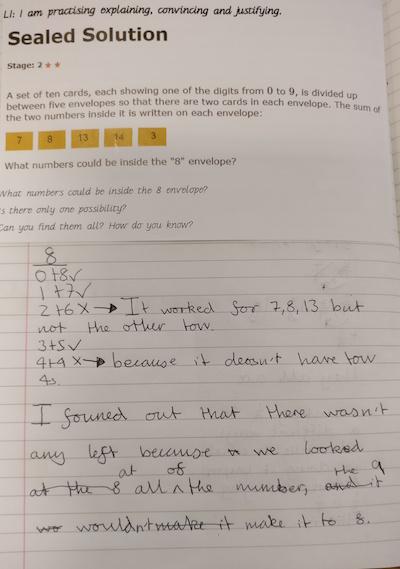 LI: I am practising explaining, convincing and justifying.
Sealed Solution
Stage: 2 ★★
A set of ten cards, each showing one of the digits from 0 to 9, is divided up
between five envelopes so that there are two cards in each envelope. The sum of
the two numbers inside it is written on each envelope:
7 8 13 14 3
What numbers could be inside the "8" envelope?
What numbers could be inside the 8 envelope?
Is there only one possibility?
Can you find them all? How do you know?
8
0+8✓
1+7✓
2+6 X → It worked for 7,8,13 but
not the other tow.
3+5✓
4+4 X → because it deosn't have tow
4s.
I founed out that there wasn't
any left because we looked
at of the 9
at the 8 all ^ the number, and it
wo wouldn't make it make it to 8.